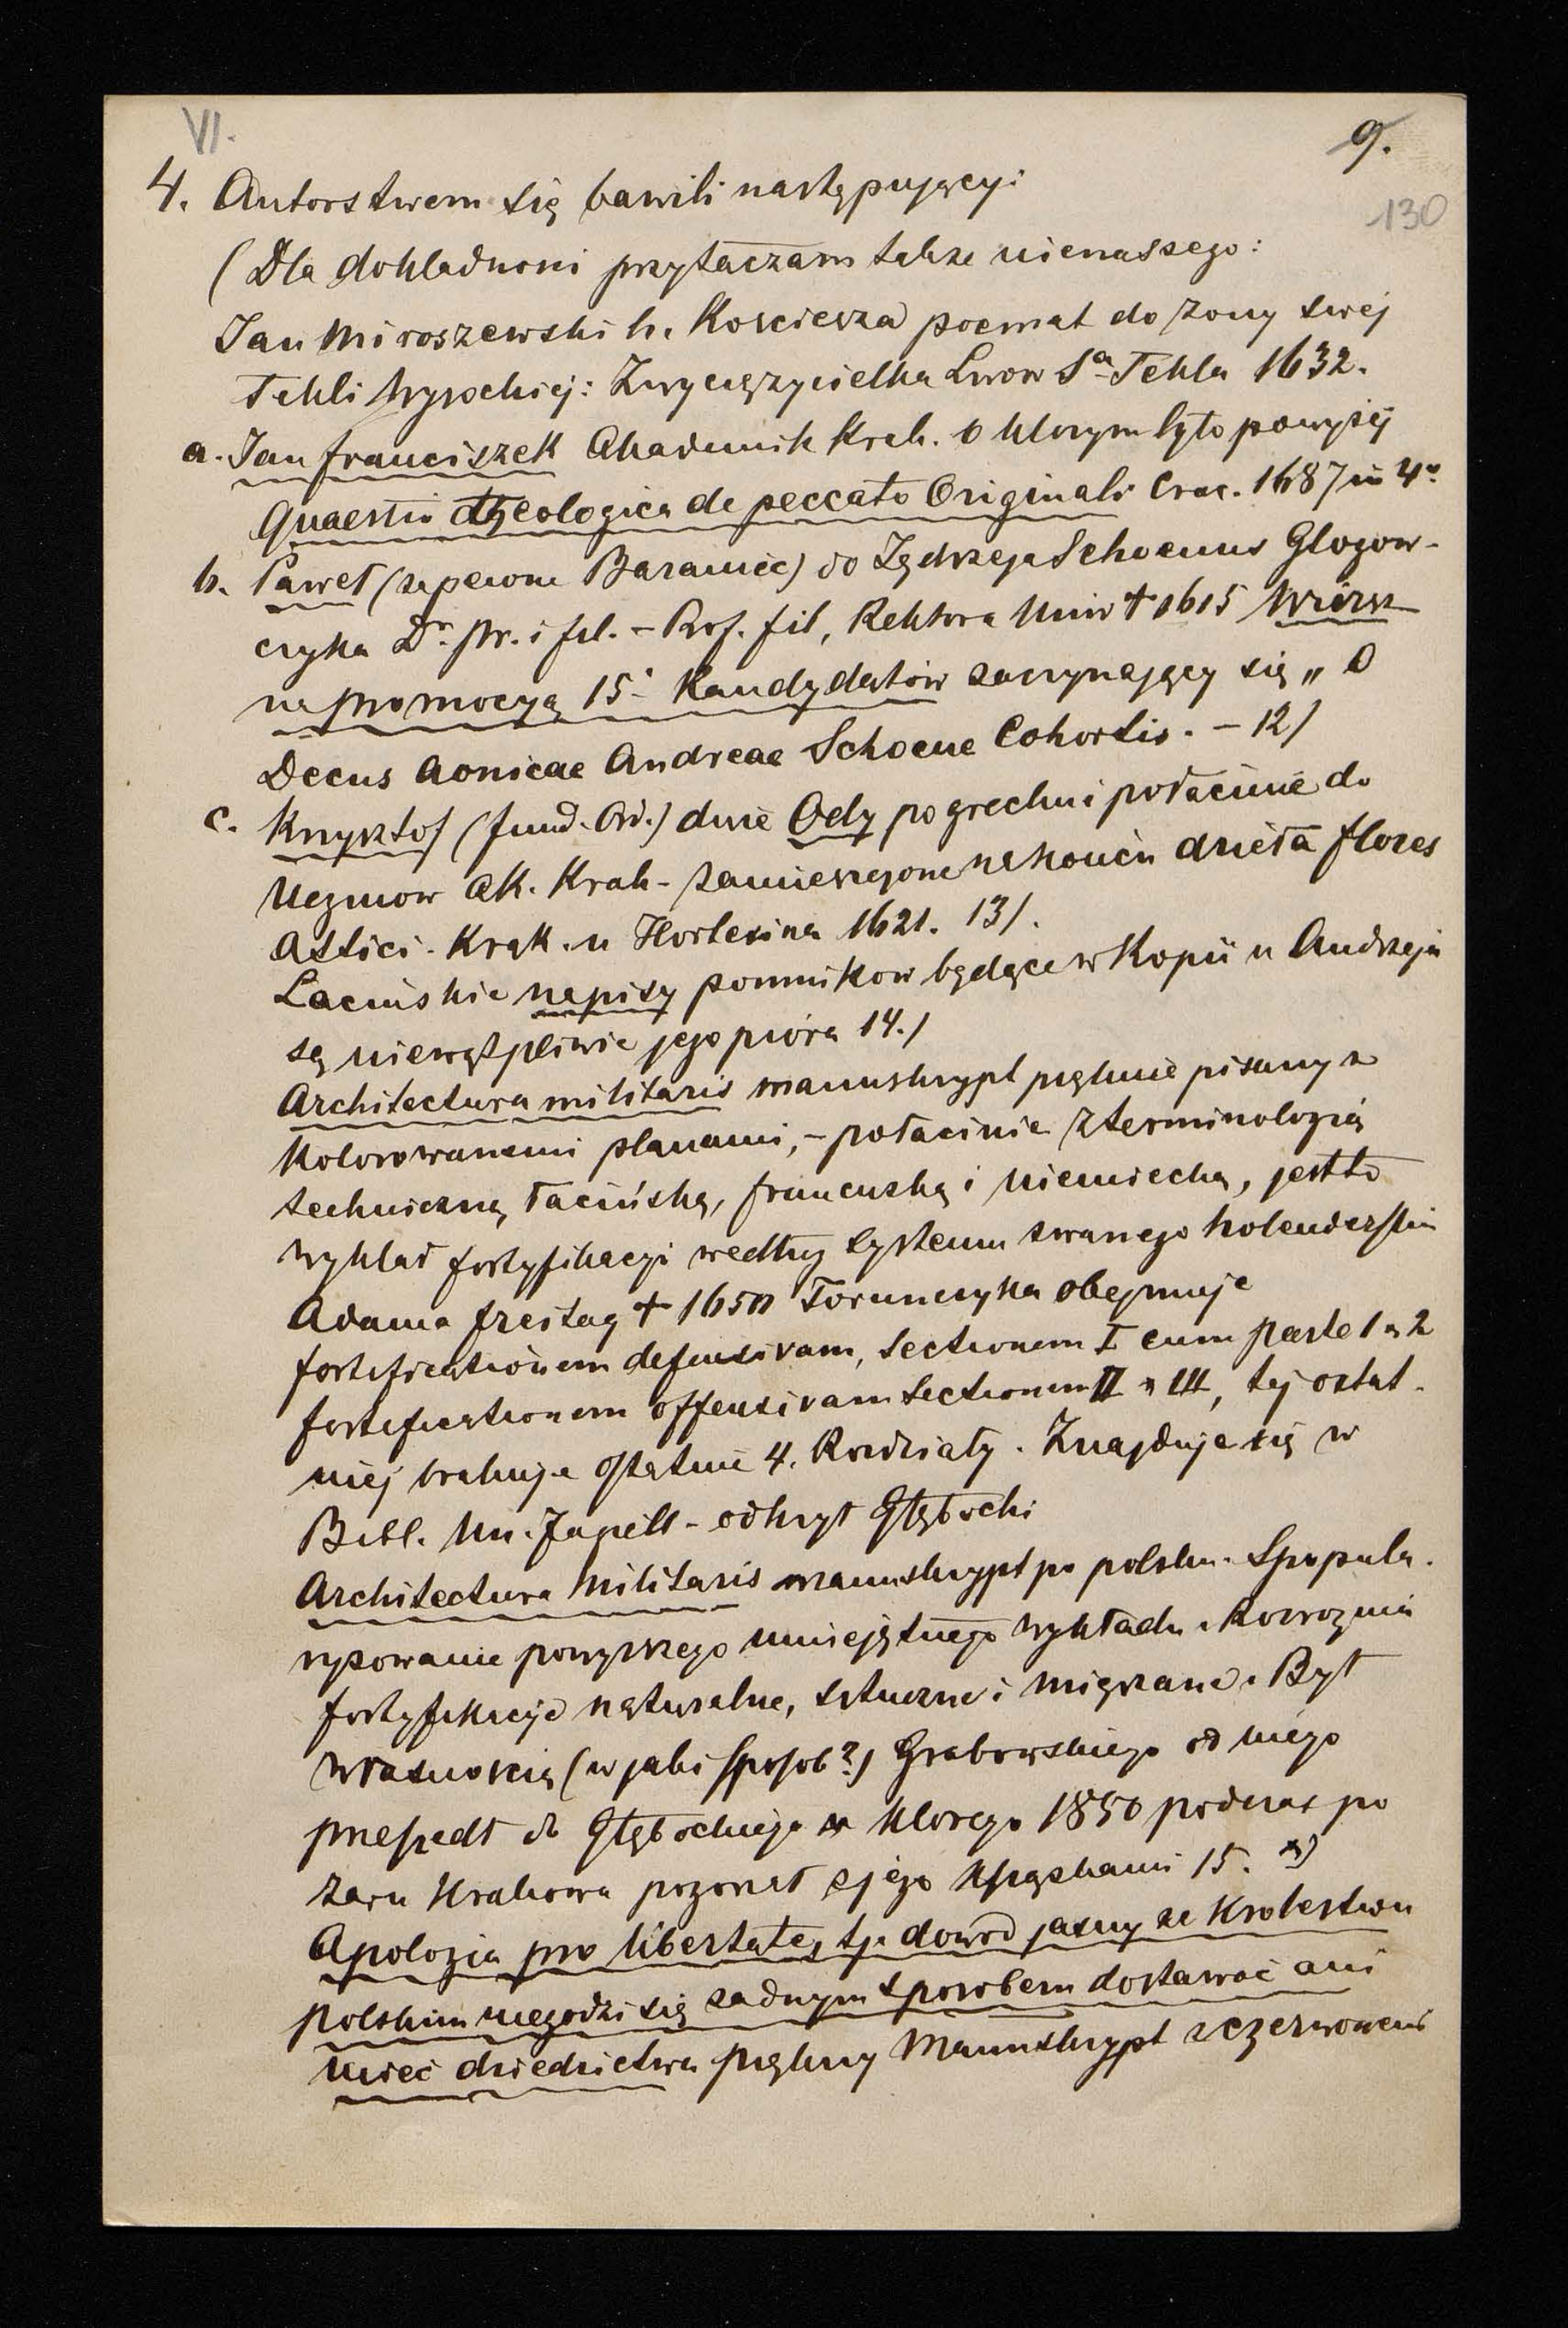 VI.
9.
130
4. Autorstwem się bawili następujący:
(Dla dokładności przytaczam także nienaszego:
Jan Miroszewski h. Kościesza) poemat do żony swej
Tekli Wysockiej: Zwyciężycielka Lwow Sa Tekla 1632.
a. Jan Franciszek Akademik Krak. o którym było powyżej
Quaestio theologica de peccato Originali Crac. 1687 in 4o
b. Paweł (zapewne Baraniec) do Jędrzeja Schoenus Głogow-
czyka Dr. pr. i fil. - Prof. fil, Rektora Univ † 1615 Wiersz
na promocyą 15. Kandydatów zaczynający się „O
Decus Aonicae Andreae Schoene Cohortis. - 12)
c. Krzysztof (fund. Ord.) dwie Ody po grecku i po łacinie do
Uczniow Ak. Krak - zamieszczone na końcu dzieła flores
Attici. Krak. u Hortesina 1621. 13).
Łacińskie napisy pomnikow będące w Kopii u Andrzeja
są niewątpliwie jego pióra 14.)
Architectura militaris manuskrypt pięknie pisany z
Kolorowanemi planami, - po łacinie z terminologią
techniczną łacińską, francuską i niemiecką, jest to
wykład fortyfikacyi według systemu zwanego holenderskim
Adama Freitag † 1650 Toruńczyka obejmuje
fortificationem defensivam, Sectionem I cum parte 1 a 2
fortificationem offensivam Sectionem II a III, tej ostat-
niej brakuje ostatnie 4. Rozdziały. Znajduje się w
Bibl. Un. Jagiell - odkrył Głębocki
Architectura Militaris manuskrypt po polsku. Spopula-
ryzowanie powyższego umiejętnego wykładu. Rozroznia
fortyfikacye naturalne, sztuczne i mięszane. Był
własnością (w jaki sposob?) Grabowskiego od niego
przeszedł do Głębockiego u ktorego 1850 podczas po
żaru Krakowa pogorzał z jego książkami 15. *)
Apologia pro libertate, tj. dowod jasny że Krolestwu
polskim niegodzi się żadnym sposobem dostawać ani
mieć dziedzictwa piękny Manuskrypt z czerwonemi